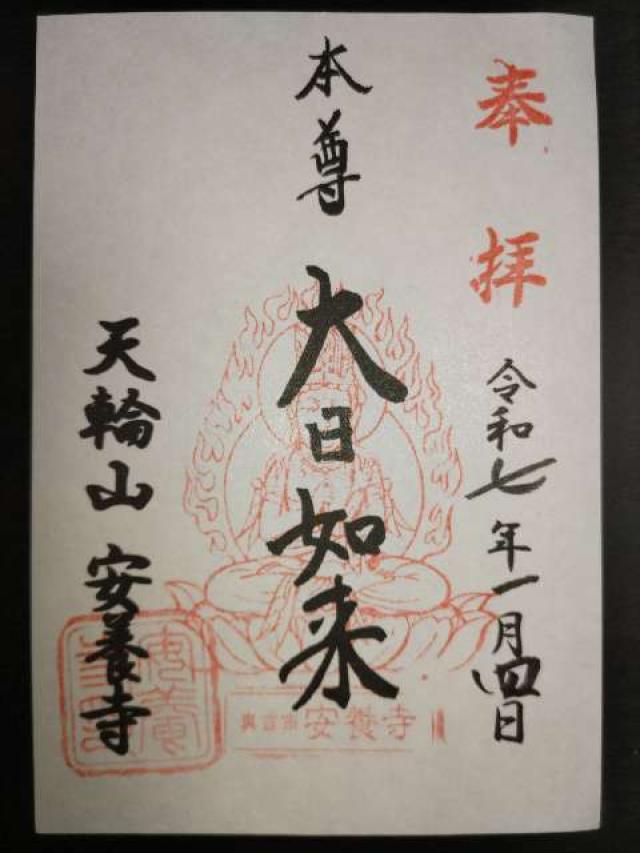 奉拝
令和七年一月四日
本尊 大日如来
天輪山 安養寺
安養寺